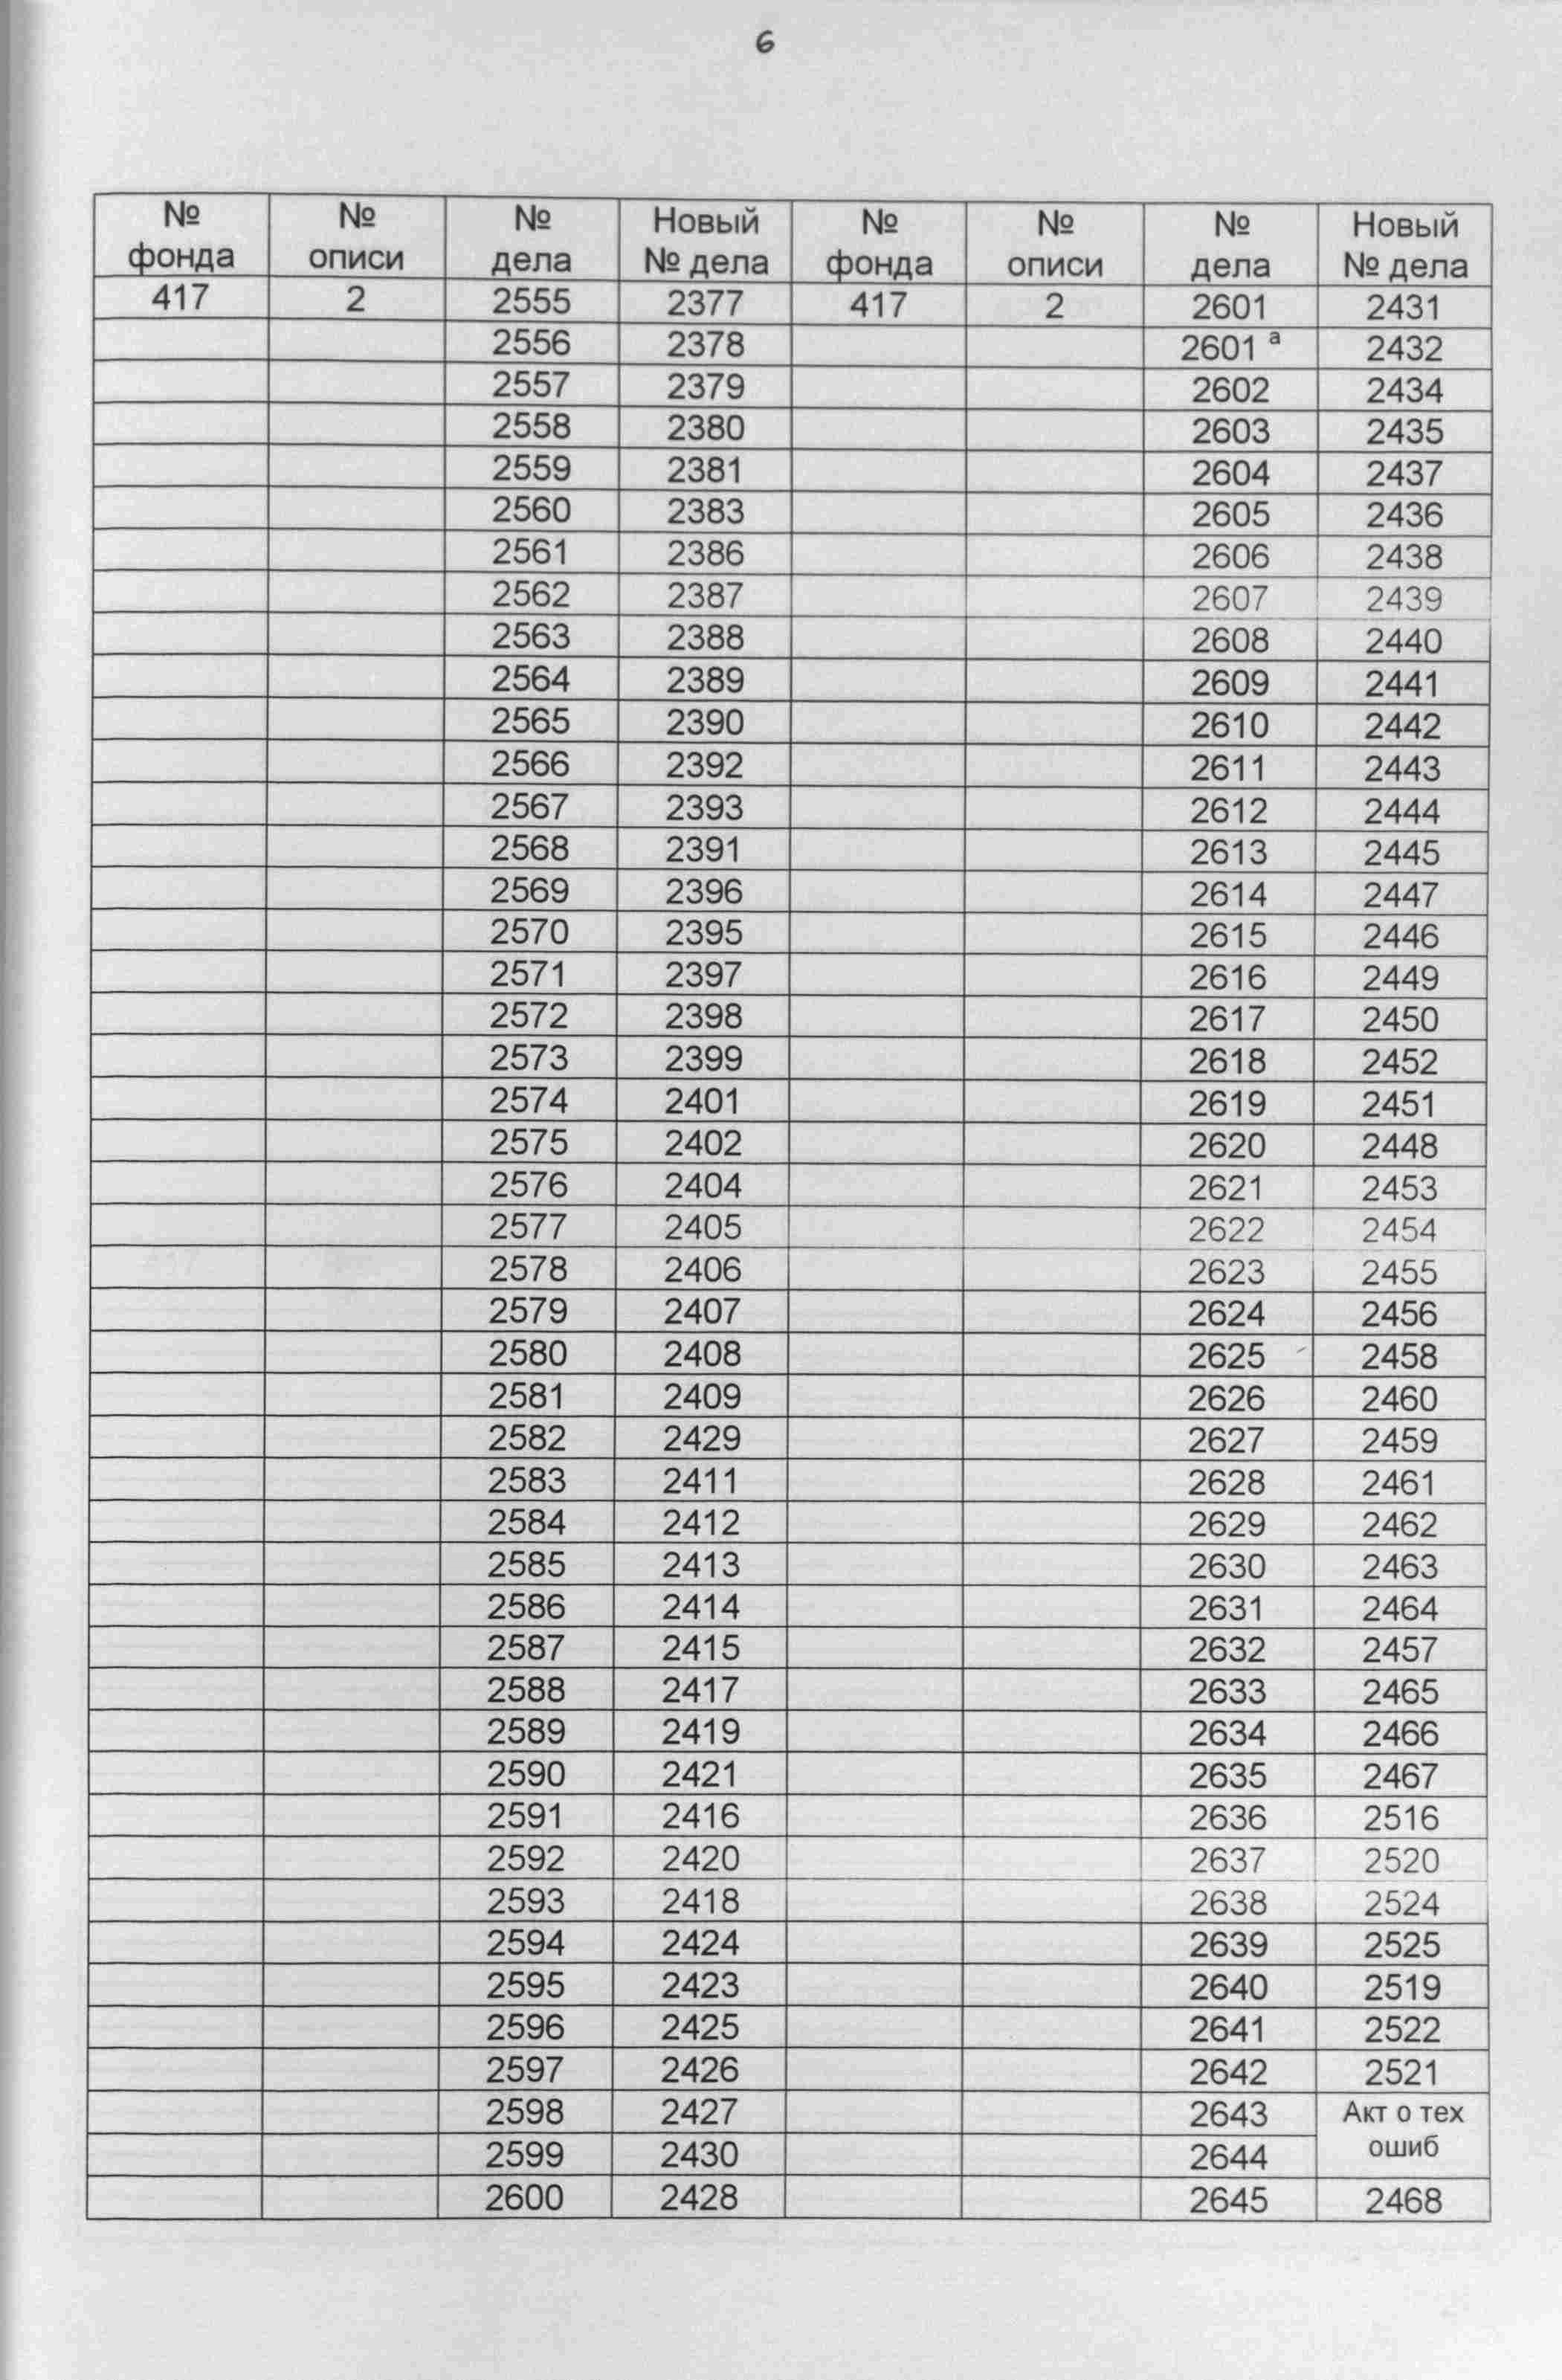 6
№ № № Новый № № № Новый
фонда описи дела № дела фонда описи дела № дела
417 2 2555 2377 417 2 2601 2431
2556 2378 2601 а 2432
2557 2379 2602 2434
2558 2380 2603 2435
2559 2381 2604 2437
2560 2383 2605 2436
2561 2386 2606 2438
2562 2387 2607 2439
2563 2388 2608 2440
2564 2389 2609 2441
2565 2390 2610 2442
2566 2392 2611 2443
2567 2393 2612 2444
2568 2391 2613 2445
2569 2396 2614 2447
2570 2395 2615 2446
2571 2397 2616 2449
2572 2398 2617 2450
2573 2399 2618 2452
2574 2401 2619 2451
2575 2402 2620 2448
2576 2404 2621 2453
2577 2405 2622 2454
2578 2406 2623 2455
2579 2407 2624 2456
2580 2408 2625 2458
2581 2409 2626 2460
2582 2429 2627 2459
2583 2411 2628 2461
2584 2412 2629 2462
2585 2413 2630 2463
2586 2414 2631 2464
2587 2415 2632 2457
2588 2417 2633 2465
2589 2419 2634 2466
2590 2421 2635 2467
2591 2416 2636 2516
2592 2420 2637 2520
2593 2418 2638 2524
2594 2424 2639 2525
2595 2423 2640 2519
2596 2425 2641 2522
2597 2426 2642 2521
2598 2427 2643 Акт о тех
2599 2430 2644 ошиб
2600 2428 2645 2468